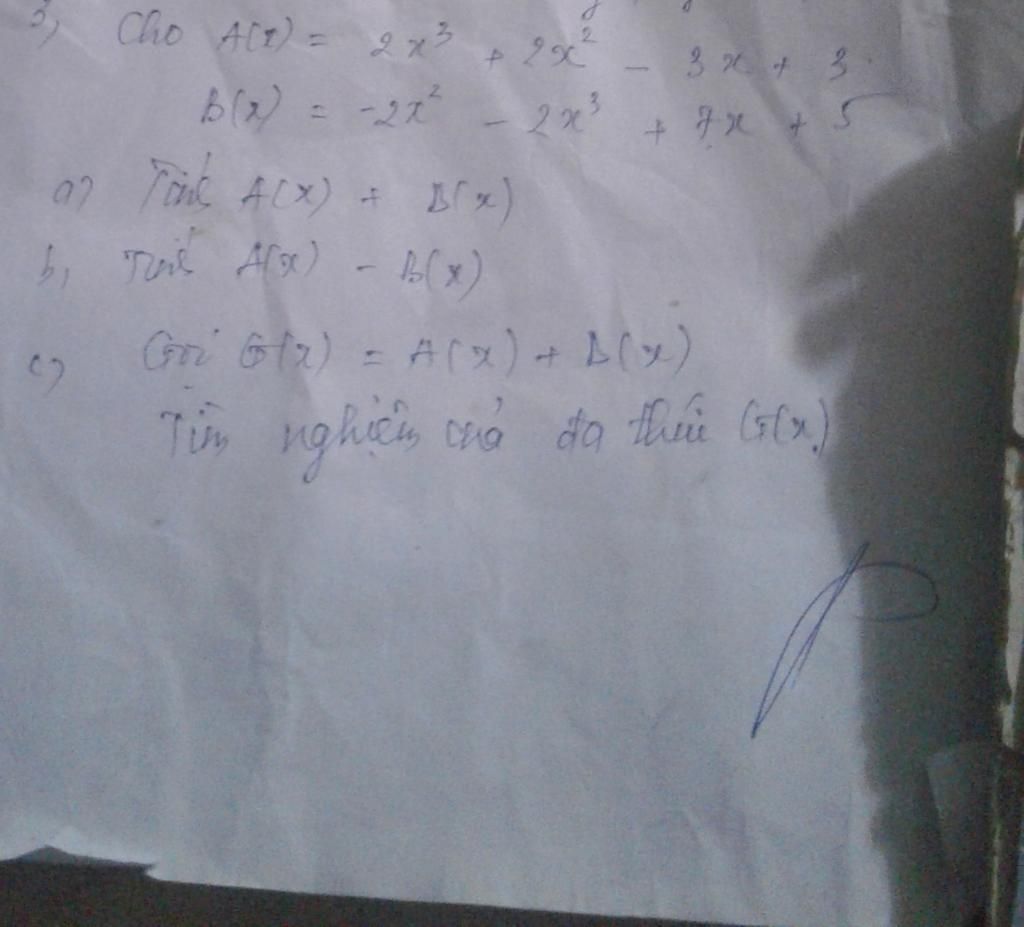 3, Cho A(x) = 2x³ + 2x² - 3x + 3
B(x) = -2x² - 2x³ + 7x + 5
a) Tính A(x) + B(x)
b, Tính A(x) - B(x)
c) Gọi G(x) = A(x) + B(x)
Tìm nghiệm của đa thức G(x)